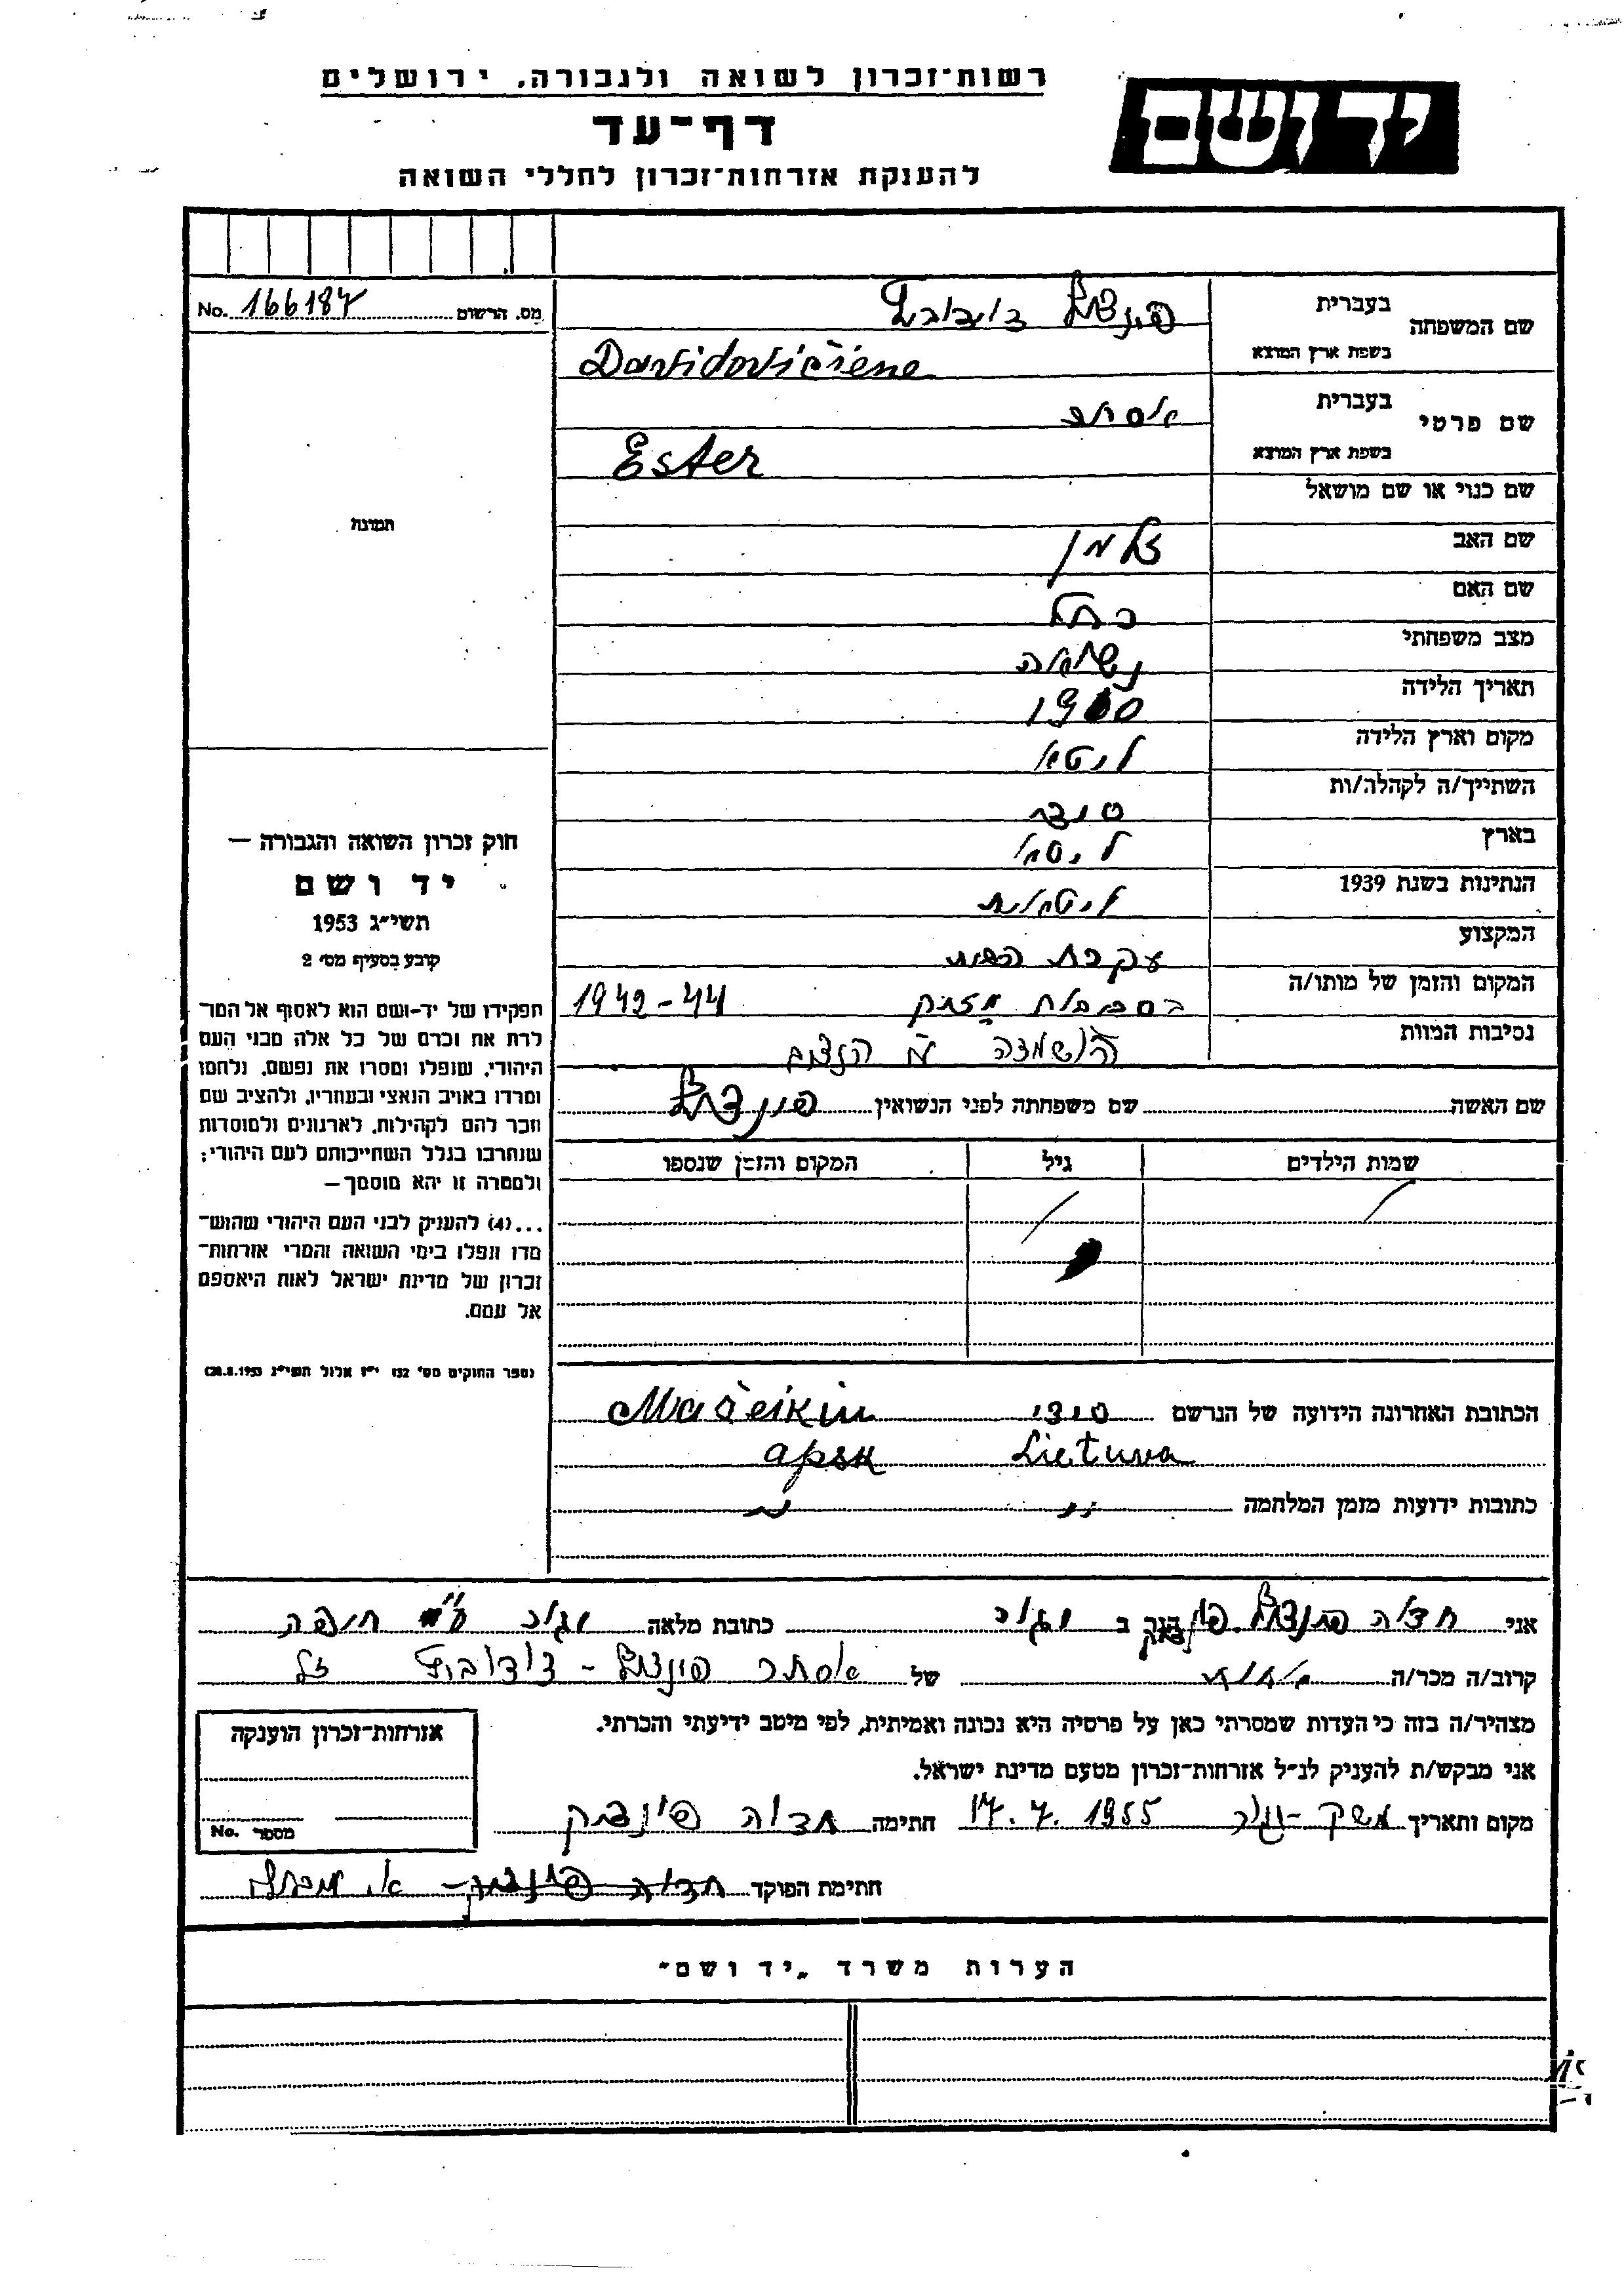 רשות־זכרון לשואה ולגבורה, ירושלים
יד ושם
דף־עד
להענקת אזרחות־זכרון לחללי השואה
מס. הרשום 166187 No.
שם המשפחה
בעברית
בשפת ארץ המוצא Davidovičiene
שם פרטי
בעברית אסתר
בשפת ארץ המוצא Ester
שם כנוי או שם מושאל
שם האב זלמן
שם האם רחל
מצב משפחתי נשואה
תאריך הלידה 1900
מקום וארץ הלידה ליטא
השתייך/ה לקהלה/ות
בארץ ליטא
הנתינות בשנת 1939 ליטאית
המקצוע עקרת הבית
המקום והזמן של מותו/ה בסביבות 1942-44
נסיבות המוות הושמדה ע"י הנאצים
שם האשה שם משפחתה לפני הנשואין
שמות הילדים גיל המקום והזמן שנספו
הכתובת האחרונה הידועה של הנרשם Mažeikiu
apsk Lietuva
כתובות ידועות מזמן המלחמה
תמונה
חוק זכרון השואה והגבורה —
יד ושם
תשי״ג 1953
קובע בסעיף מס׳ 2
תפקידו של יד-ושם הוא לאסוף אל המו־
לדת את זכרם של כל אלה מבני העם
היהודי, שנפלו ומסרו את נפשם, נלחמו
ומרדו באויב הנאצי ובעוזריו, ולהציב שם
וזכר להם לקהילות, לארגונים ולמוסדות
שנחרבו בגלל השתייכותם לעם היהודי;
ולמטרה זו יהא מוסמך—
...(4) להעניק לבני העם היהודי שהוש־
מדו ונפלו בימי השואה והמרי אזרחות־
זכרון של מדינת ישראל לאות היאספם
אל עמם.
(ספר החוקים מס׳ 132 י״ז אלול תשי״ג 28.8.1953)
אני חצוה הגר ב יגור כתובת מלאה יגור חיפה
קרוב/ה מכר/ה של אסתר
מצהיר/ה בזה כי העדות שמסרתי כאן על פרטיה היא נכונה ואמיתית, לפי מיטב ידיעתי והכרתי.
אני מבקש/ת להעניק לנ״ל אזרחות־זכרון מטעם מדינת ישראל.
מקום ותאריך משק-יגור 17.7.1955 חתימה
חתימת הפוקד
אזרחות־זכרון הוענקה
מספר No.
הערות משרד „יד ושם״